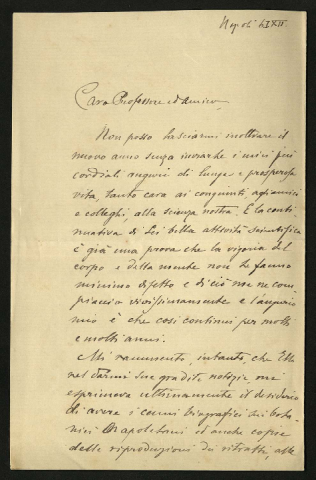 Napoli
Caro Professore ed amico,
Non posso lasciarmi inoltrare il
nuovo anno senza inviarle i miei più
cordiali auguri di lunga e prosperosa
vita, tanto cara ai congiunti agli amici
e colleghi, alla scienza nostra. E la conti-
nuativa di Lei bella attività scientifica
è già una prova che la vigoria del
corpo e della mente non le fanno
minimo difetto e di ciò me ne com-
piaccio vivissimamente e l'augurio
mio è che così continui per molti
e molti anni.
Mi rammento, intanto, che Ella
nel darmi sue gradite notizie, mi
esprimeva ultimamente il desiderio
di avere i cenni biografici dei bota-
nici Napoletani ed anche copie
delle riproduzioni dei ritratti, alle